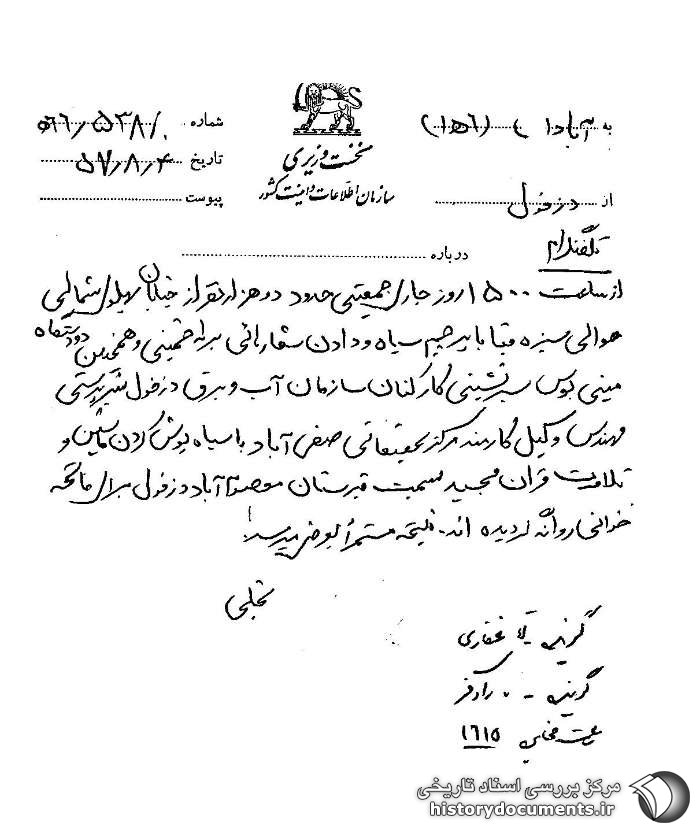 به آبادان (۱۵۶)
از دزفول
نخست وزیری
سازمان اطلاعات و امنیت کشور
شماره ۵۶۶/۵۳۸۱۰
تاریخ ۵۷/۸/۴
پیوست
تلفنگرام
درباره
از ساعت ۱۵۰۰ روز جاری جمعیتی حدود دو هزار نفر از خیابان پهلوی شمالی
حوالی سبزه قبا با پرچم سیاه و دادن شعارهائی برله خمینی و همچنین دو دستگاه
مینی بوس سرنشینی کارکنان سازمان آب و برق دزفول بسرپرستی
مهندس وکیل کارمند مرکز تحقیقاتی صفی آباد با سیاه پوش کردن ماشین و
تلاوت قرآن مجید بسمت قبرستان دزفول برای فاتحه
خوانی روانه گردیده اند. نتیجه مستمراً بعرض میرسد.
تجلی
گوینده غفاری
گیرنده رادفر
ساعت مخابره ۱۶۱۵
مرکز بررسی اسناد تاریخی
historydocuments.ir